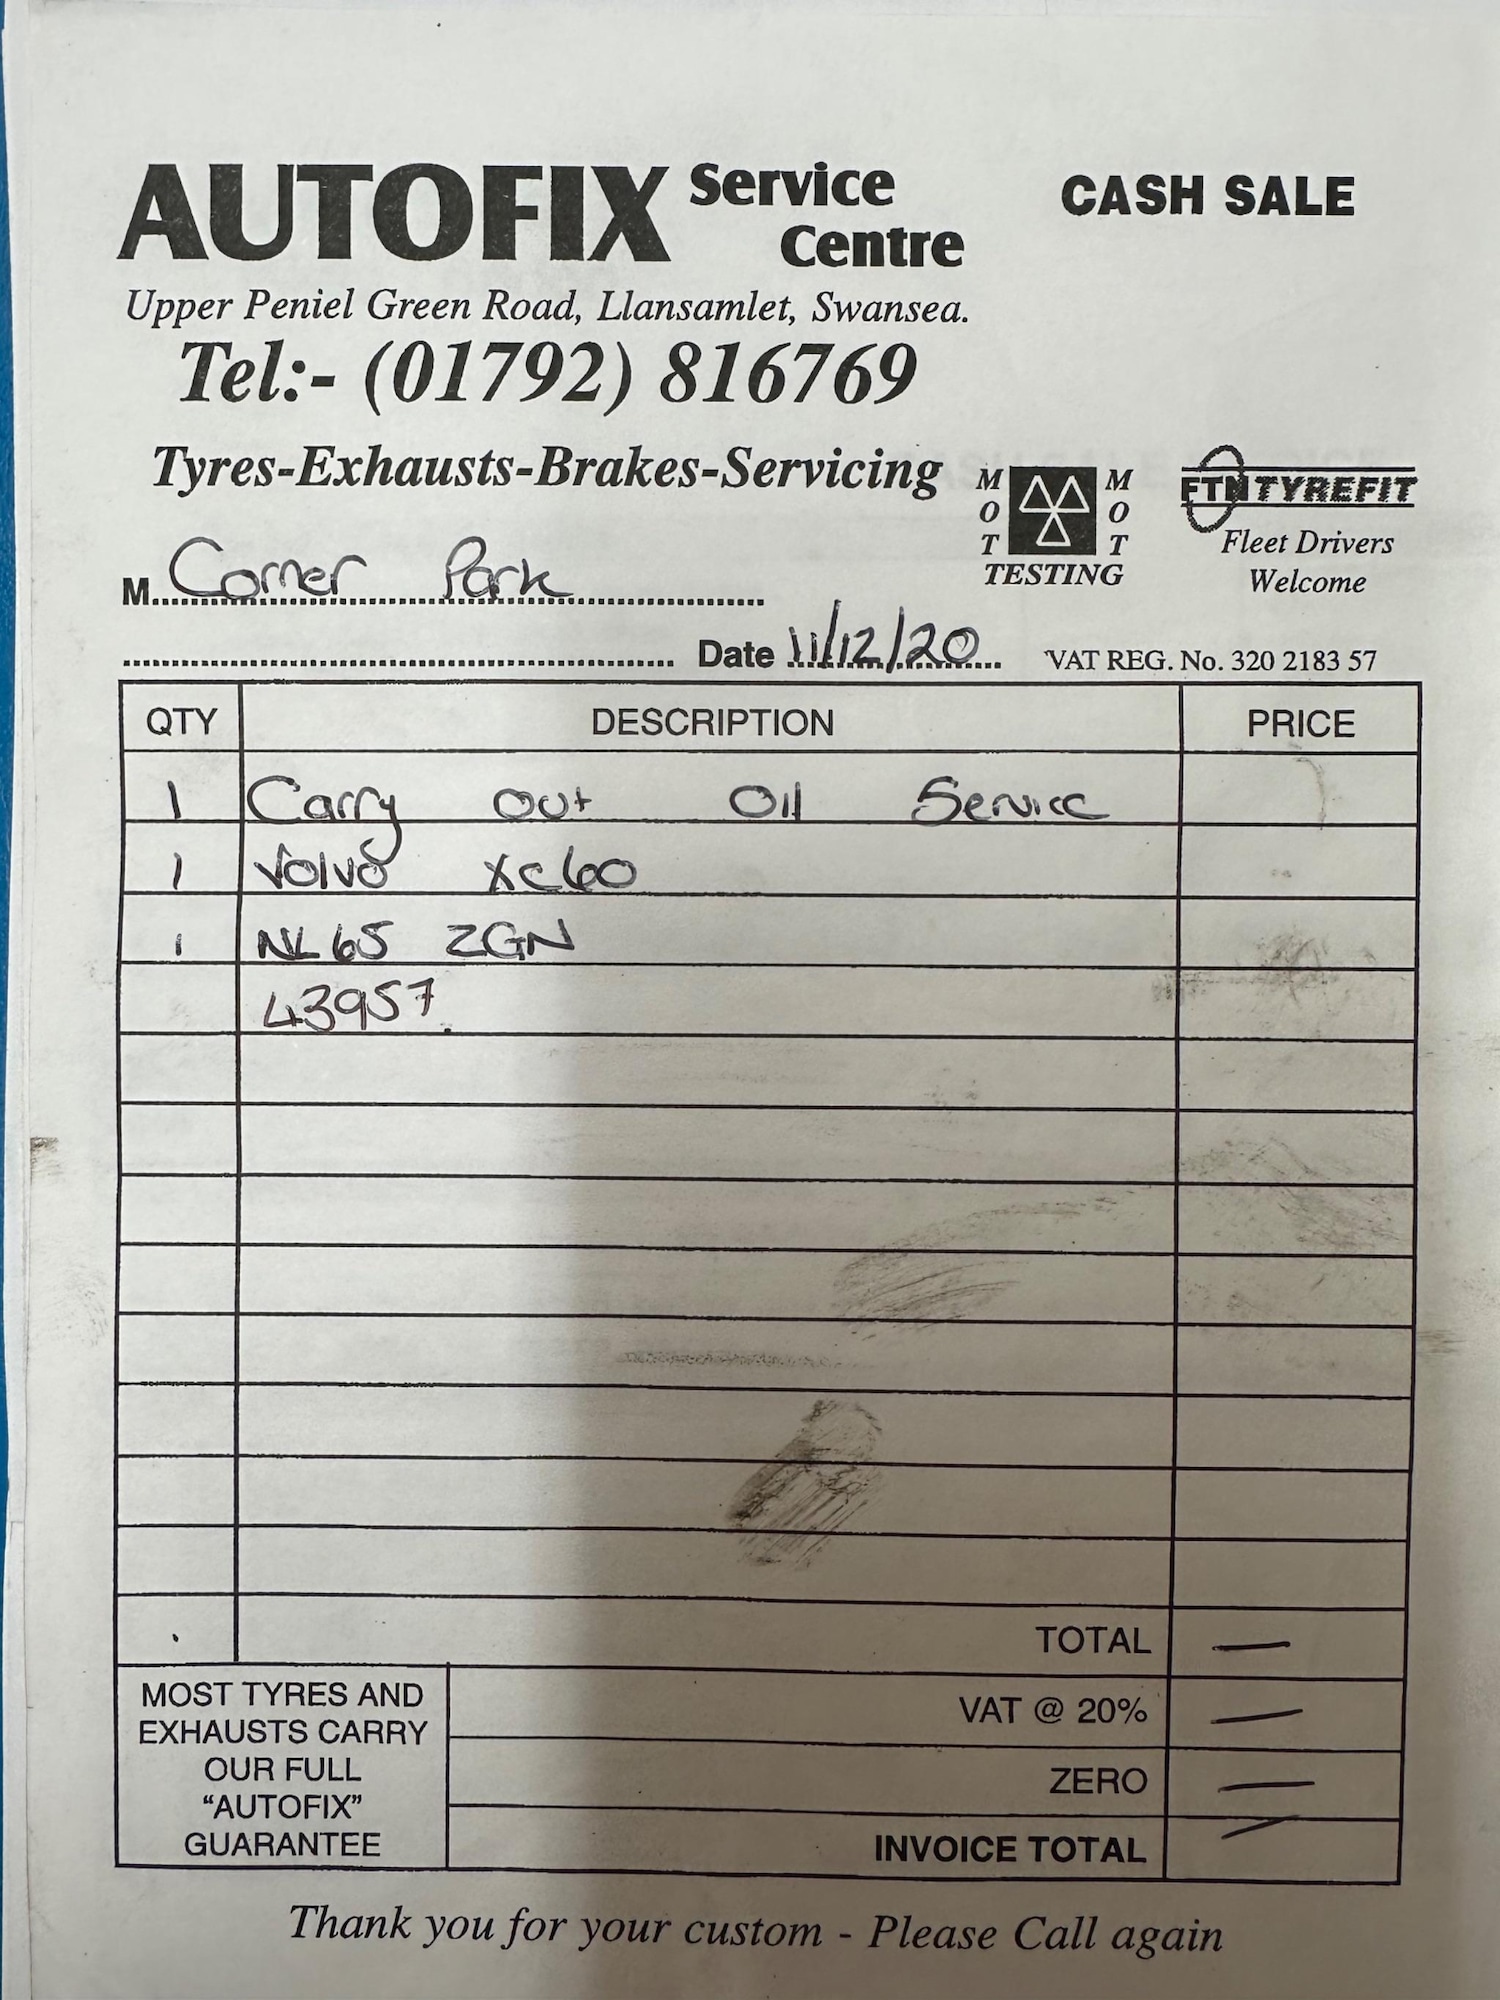 AUTOFIX Service Centre
CASH SALE
Upper Peniel Green Road, Llansamlet, Swansea.
Tel:- (01792) 816769
Tyres-Exhausts-Brakes-Servicing
MOT MOT
TESTING
FTN TYREFIT
Fleet Drivers
Welcome
M. Corner Park
Date 11/12/20
VAT REG. No. 320 2183 57
QTY DESCRIPTION PRICE
1 Carry out oil Service
1 Volvo XC60
1 NL65 ZGN
43957.
TOTAL —
VAT @ 20% —
ZERO —
INVOICE TOTAL —
MOST TYRES AND
EXHAUSTS CARRY
OUR FULL
“AUTOFIX”
GUARANTEE
Thank you for your custom - Please Call again